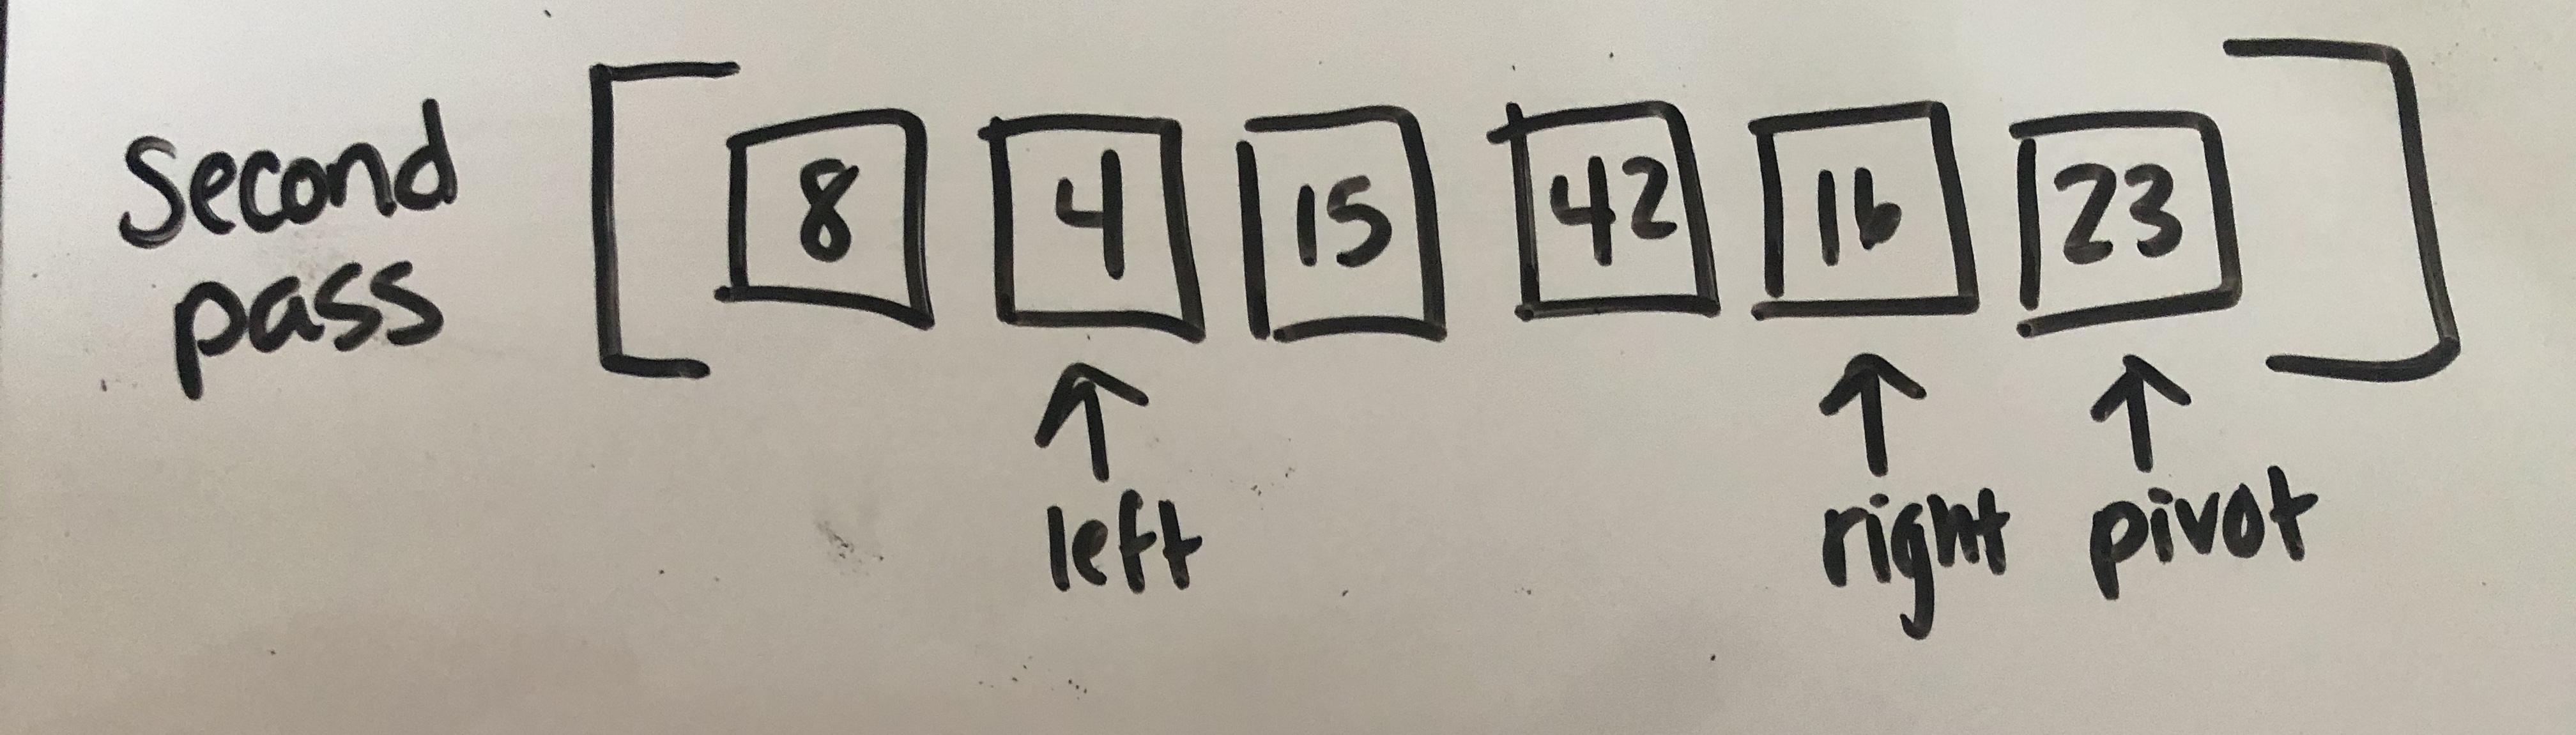 Second
pass
8 4 15 42 16 23
left right pivot